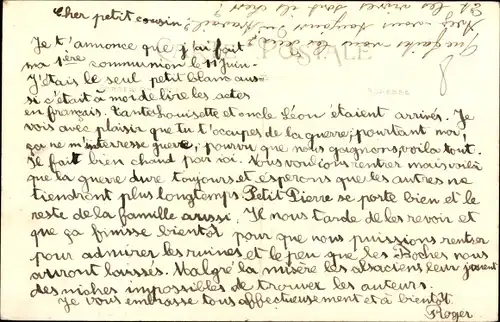 Cher petit cousin,
Je t'annonce que j'ai fait
ma 1ère communion le 11 juin.
J'étais le seul petit blanc aus-
si c'était à moi de lire les actes
en français. Tante Louisette et oncle Léon étaient arrivés. Je
vois avec plaisir que tu t'occupes de la guerre; pourtant moi
ça ne m'interresse guère, pourvu que nous gagnons, voilà tout.
Il fait bien chaud par ici. Nous voulions rentrer mais voilà
que ta guerre dure toujours et espérons que les autres ne
tiendront plus longtemps. Petit Pierre se porte bien et le
reste de la famille aussi. Il nous tarde de les revoir et
que ça finisse bientôt pour que nous puissions rentrer
pour admirer les ruines et le peu que les Boches nous
auront laissés. Malgré la misère les alsaciens leur jouent
des niches impossibles de trouver les auteurs.
Je vous embrasse tous affectueusement et à bientôt.
Roger
POSTALE
Que faites vous
Avez vous toujours du travail?
Et les vivres sont ils chers?